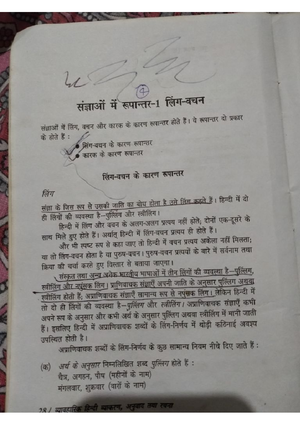 ७
संज्ञाओं में रूपान्तर-1 लिंग-वचन
संज्ञाओं में लिंग, वचन और कारक के कारण रूपान्तर होते हैं। ये रूपान्तर दो प्रकार
के होते हैं :
• लिंग-वचन के कारण रूपान्तर
• कारक के कारण रूपान्तर
लिंग-वचन के कारण रूपान्तर
लिंग
संज्ञा के जिस रूप से उसकी जाति का बोध होता है उसे लिंग कहते हैं। हिन्दी में दो
ही लिंगों की व्यवस्था है—पुल्लिंग और स्त्रीलिंग।
हिन्दी में लिंग और वचन के अलग-अलग प्रत्यय नहीं होते; दोनों एक-दूसरे के
साथ मिले हुए होते हैं। अर्थात् हिन्दी में लिंग-वचन प्रत्यय ही होते हैं।
और भी स्पष्ट रूप से कहा जाए तो हिन्दी में वचन प्रत्यय अकेला नहीं मिलता;
या तो लिंग-वचन होता है या पुरुष-वचन। पुरुष-वचन प्रत्ययों के बारे में सर्वनाम तथा
क्रिया की चर्चा करते हुए विस्तार से बताया जाएगा।
संस्कृत तथा अन्य अनेक भारतीय भाषाओं में तीन लिंगों की व्यवस्था है—पुल्लिंग,
स्त्रीलिंग और नपुंसक लिंग। प्राणिवाचक संज्ञाएँ अपनी जाति के अनुसार पुल्लिंग अथवा
स्त्रीलिंग होती हैं; अप्राणिवाचक संज्ञाएँ सामान्य रूप से नपुंसक लिंग। लेकिन हिन्दी में
तो दो ही लिंगों की व्यवस्था है—पुल्लिंग और स्त्रीलिंग। अप्राणिवाचक संज्ञाएँ कभी
अपने रूप के अनुसार और कभी अर्थ के अनुसार पुल्लिंग अथवा स्त्रीलिंग में मानी जाती
हैं। इसलिए हिन्दी में अप्राणिवाचक शब्दों के लिंग-निर्णय में थोड़ी कठिनाई अवश्य
उपस्थित होती है।
अप्राणिवाचक शब्दों के लिंग-निर्णय के कुछ सामान्य नियम नीचे दिए जाते हैं :
(क) अर्थ के अनुसार निम्नलिखित शब्द पुल्लिंग होते हैं :
चैत्र, अगहन, पौष (महीनों के नाम)
मंगलवार, शुक्रवार (वारों के नाम)
28 / व्यावहारिक हिन्दी व्याकरण, अनुवाद तथा रचना